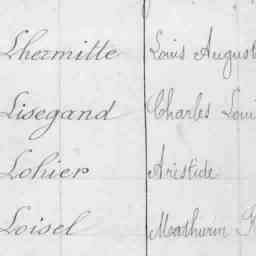 Lhermitte Louis August
Lisegand Charles Loui
Lohier Aristide
Loisel Mathurin